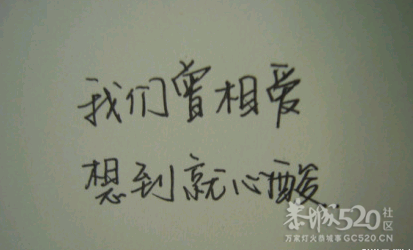 我们曾相爱
想到就心酸
恭城520社区
万家灯火恭城事GC520.CN